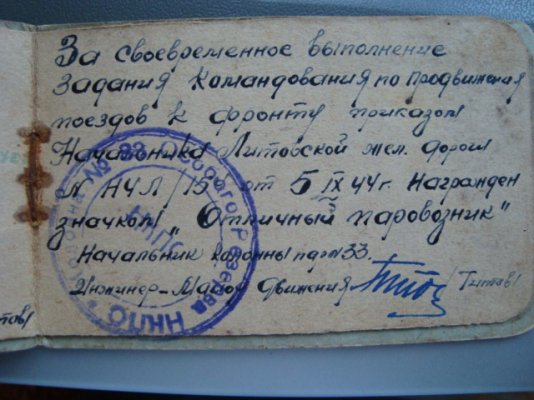 За своевременное выполнение
задания командования по продвижения
поездов к фронту приказом
Начальника Литовской жел. дороги
№ НЧЛ/15 от 5 IX 44 г. Награжден
значком „Отличный паровозник"
Начальник колонны пар № 33.
Инженер-Майор движения /Титов/
Колонна № 33 Особого Резерва НКПС
НКПС